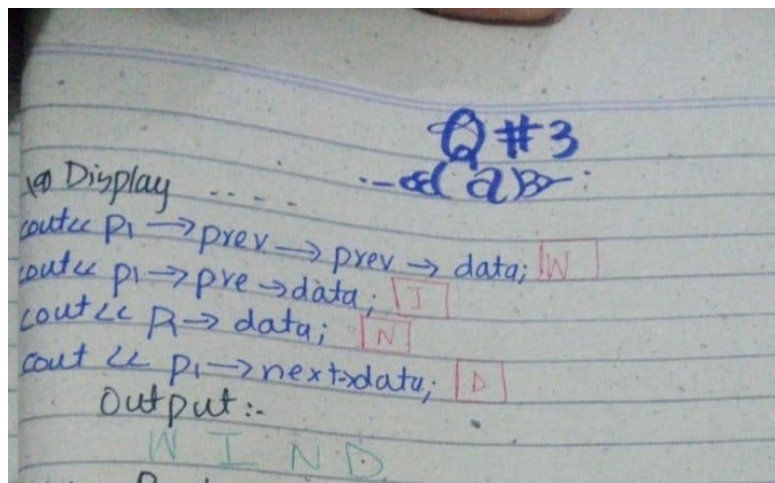 Q#3
(a)
Display ....
cout<< p1→prev→prev→data; W
cout<< p1→pre→data; I
cout<< p1→data; N
cout << p1→next→data; D
Output:-
W I N D